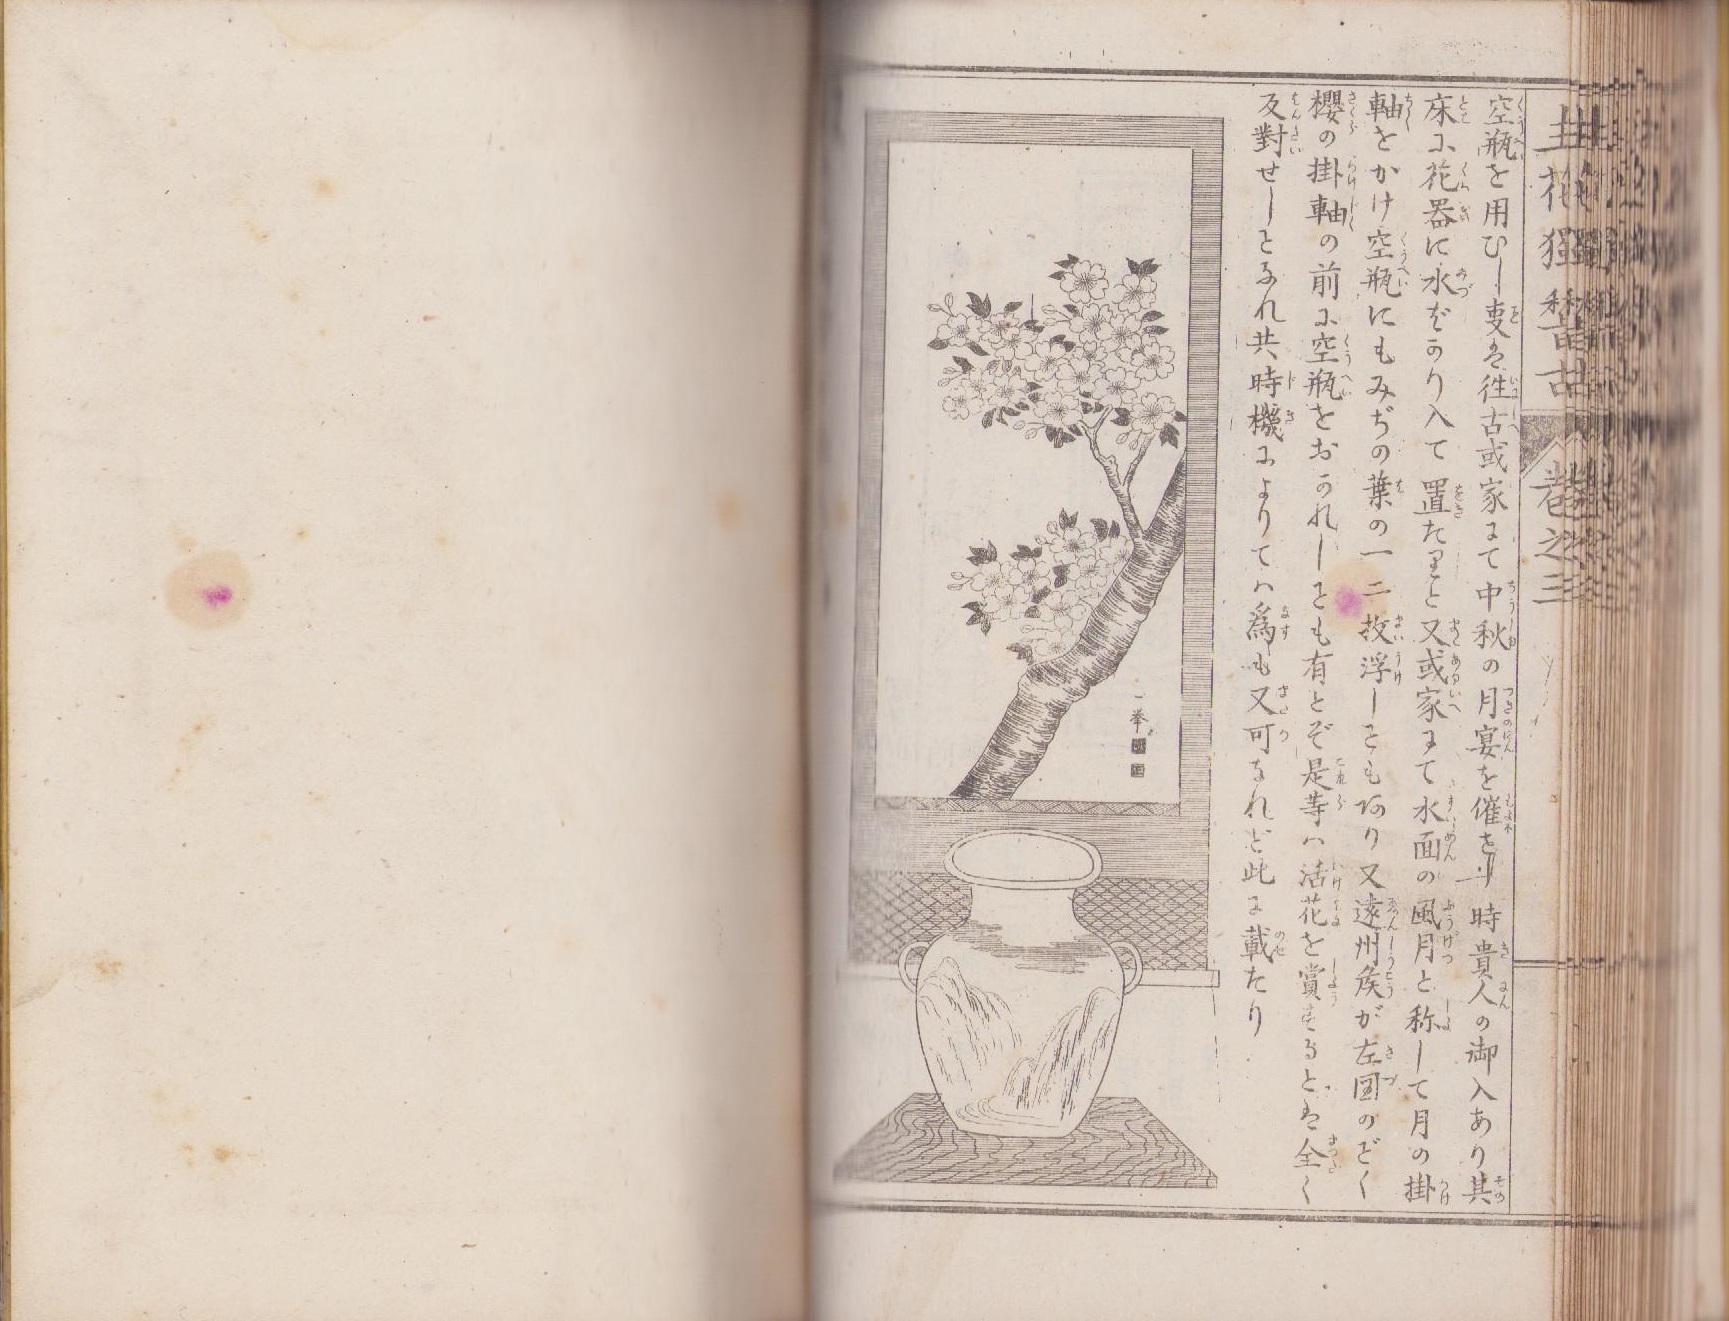 生花獨稽古 巻之三
空瓶を用ひし事は往古或家にて中秋の月宴を催せし時貴人の御入あり其
床に花器に水ばかり入て置たりと又或家にて水面の風月と称して月の掛
軸をかけ空瓶にもみぢの葉の一二枚浮しことも有り又遠州矦が左図のごとく
櫻の掛軸の前に空瓶をおかれしことも有とぞ是等ハ活花を賞することは全く
反對せしことなれ共時機によりてハ為も又可なれど此に載たり
一峯